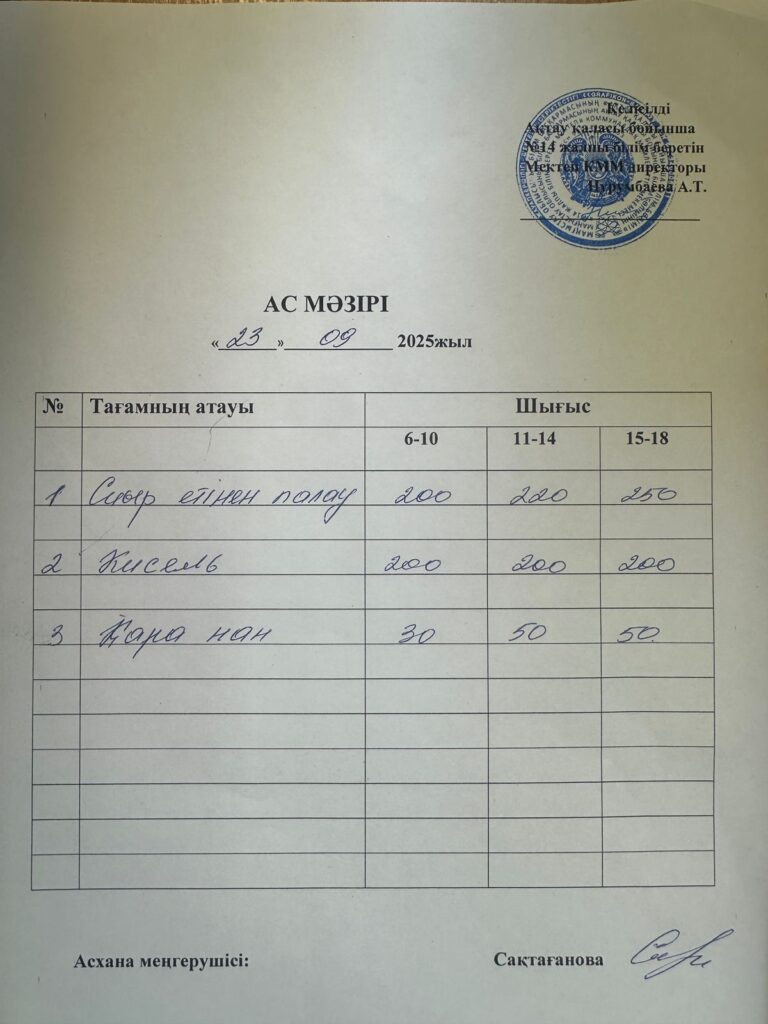 Келісілді
Ақтау қаласы бойынша
№14 жалпы білім беретін
Мектеп КММ директоры
Нурумбаева А.Т.
АС МӘЗІРІ
«23» 09 2025жыл
№ Тағамның атауы Шығыс
6-10 11-14 15-18
1 Сиыр етінен палау 200 220 250
2 Кисель 200 200 200
3 Қара нан 30 50 50
Асхана меңгерушісі: Сақтағанова